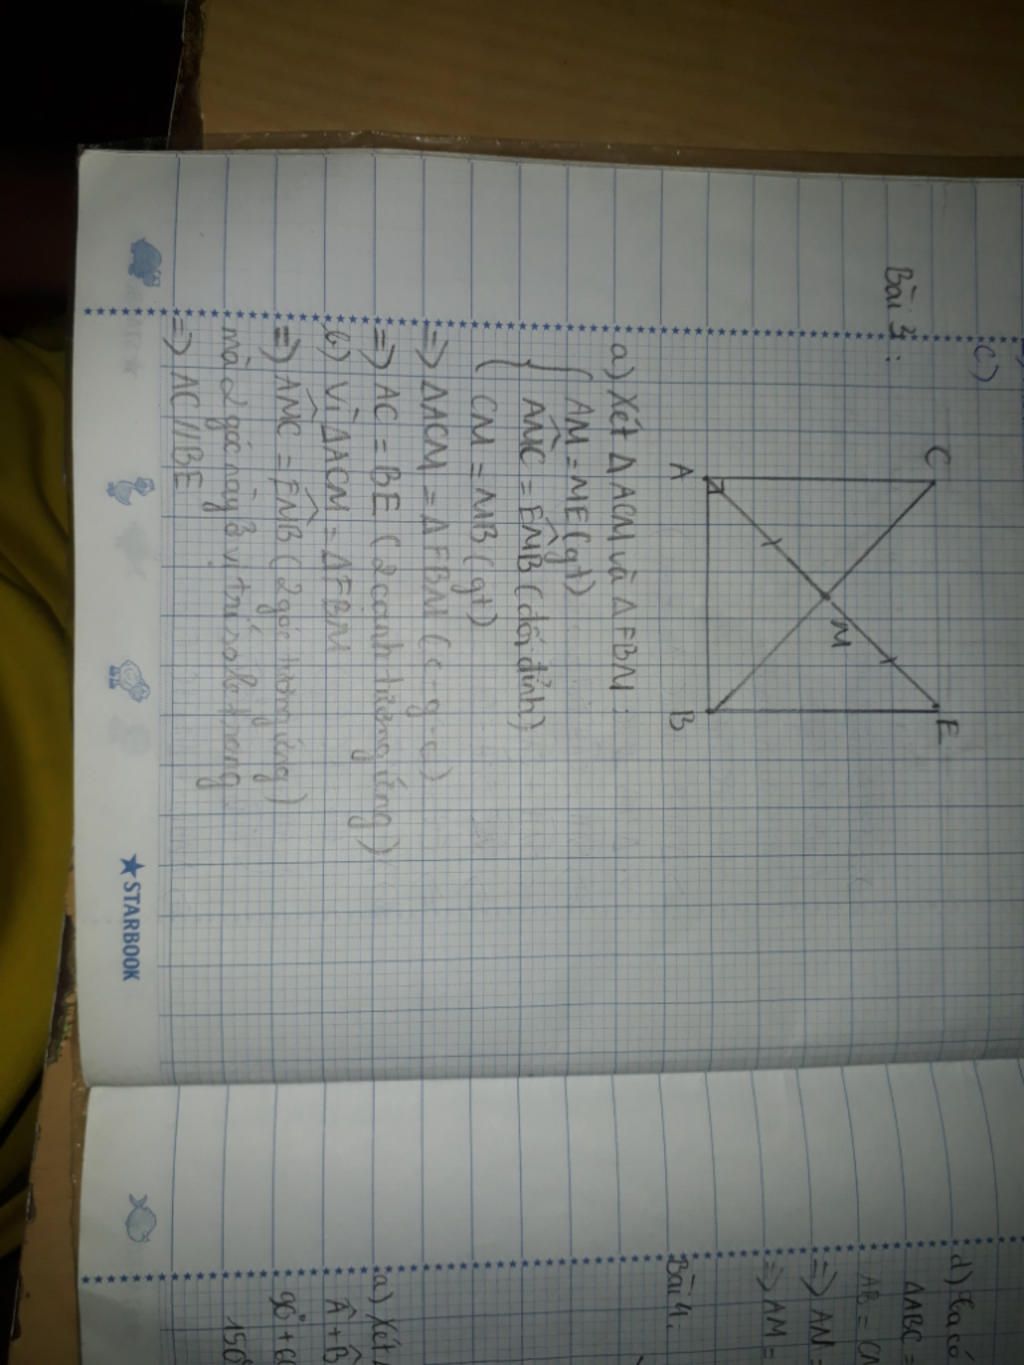 c)
Bài 3:
C
E
M
A
B
a) Xét Δ ACM và Δ EBM:
AM = ME (gt)
AMC = EMB (đối đỉnh)
CM = MB (gt)
=> ΔACM = Δ EBM (c-g-c)
=> AC = BE (2 cạnh tương ứng)
b) Vì ΔACM = Δ EBM
=> AMC = EMB (2 góc tương ứng)
mà 2 góc này ở vị trí so le trong
=> AC//BE
★STARBOOK
d) Ta có
ΔABC =
AB =
=> AN =
=> AM =
Bài 4.
a) Xét
Â + B̂
90° +
150°